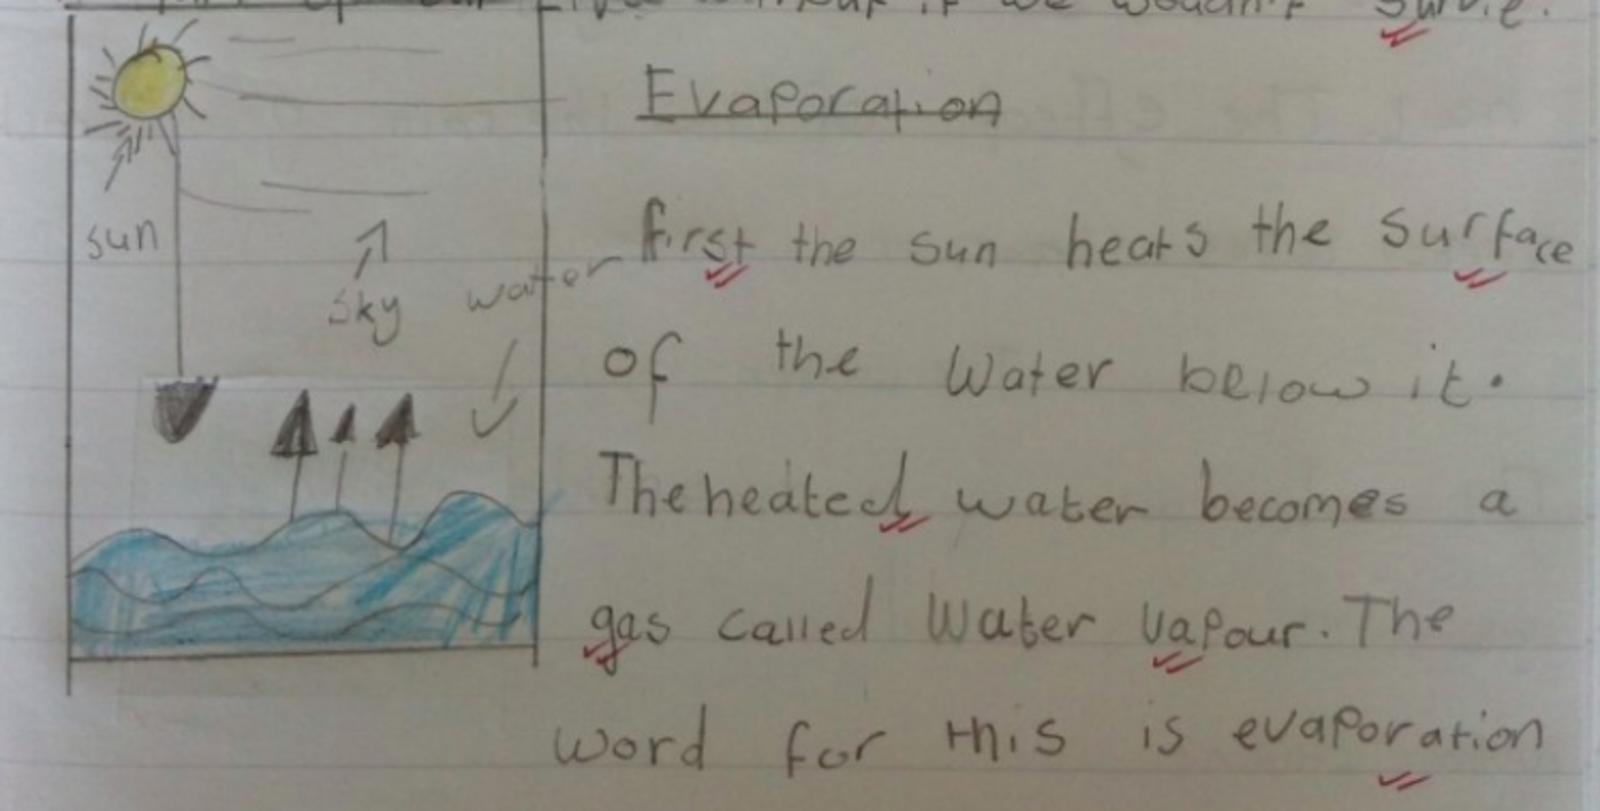 if we wouldn't
Evaporation
sun
sky
water
first the sun heats the surface
of the water below it.
The heated water becomes a
gas called water vapour. The
word for this is evaporation